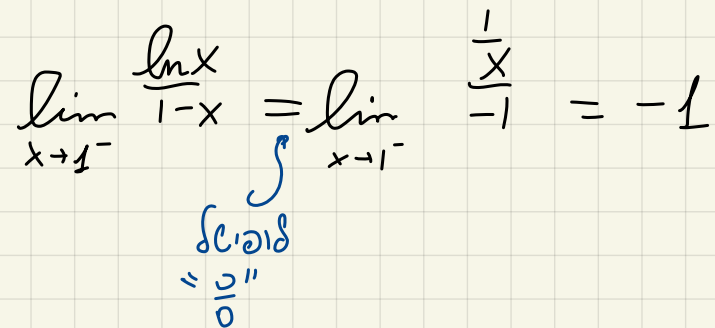 lim_{x→1⁻} \frac{ln x}{1-x} = lim_{x→1⁻} \frac{\frac{1}{x}}{-1} = -1
לופיטל
"\frac{0}{0}"